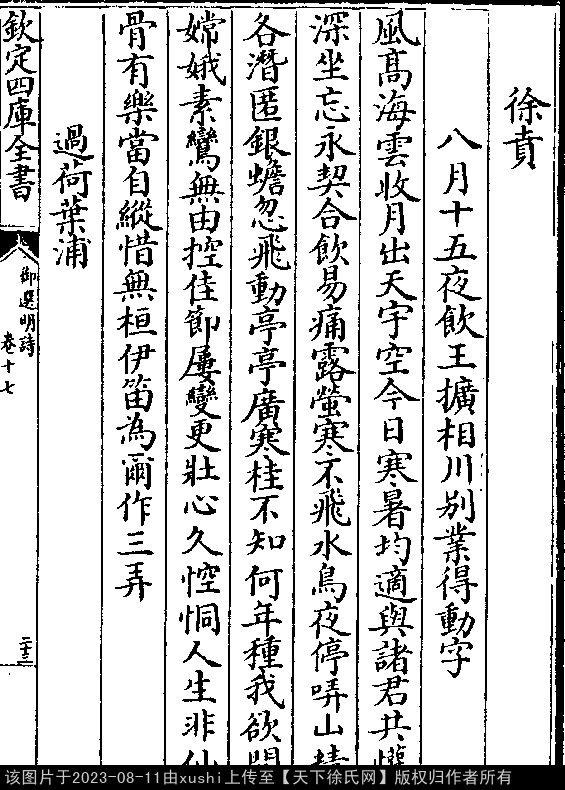 徐賁
八月十五夜飲王擴相川别業得動字
風髙海雲收月出天宇空今日寒暑均適與諸君共懽
深坐忘永契合飲易痛露螢寒不飛水鳥夜停哢山
各潛匿銀蟾忽飛動亭亭廣寒桂不知何年種我欲問
嫦娥素鸞無由控佳節屢變更壯心久悾恫人生非仙
骨有樂當自縱惜無桓伊笛為爾作三弄
過荷葉浦
欽定四庫全書
御選明詩
卷十七
二十三
该图片于2023-08-11由xushi上传至【天下徐氏网】版权归作者所有